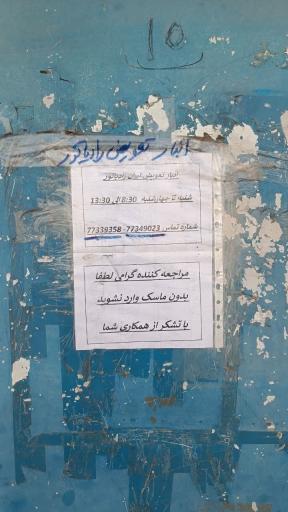 ۱۵
انبار تعویض رادیاتور
انبار تعویض ایران رادیاتور
شنبه تا چهارشنبه 8:30 الی 13:30
شماره تماس 77349023- 77339358
مراجعه کننده گرامی لطفا
بدون ماسک وارد نشوید
با تشکر از همکاری شما